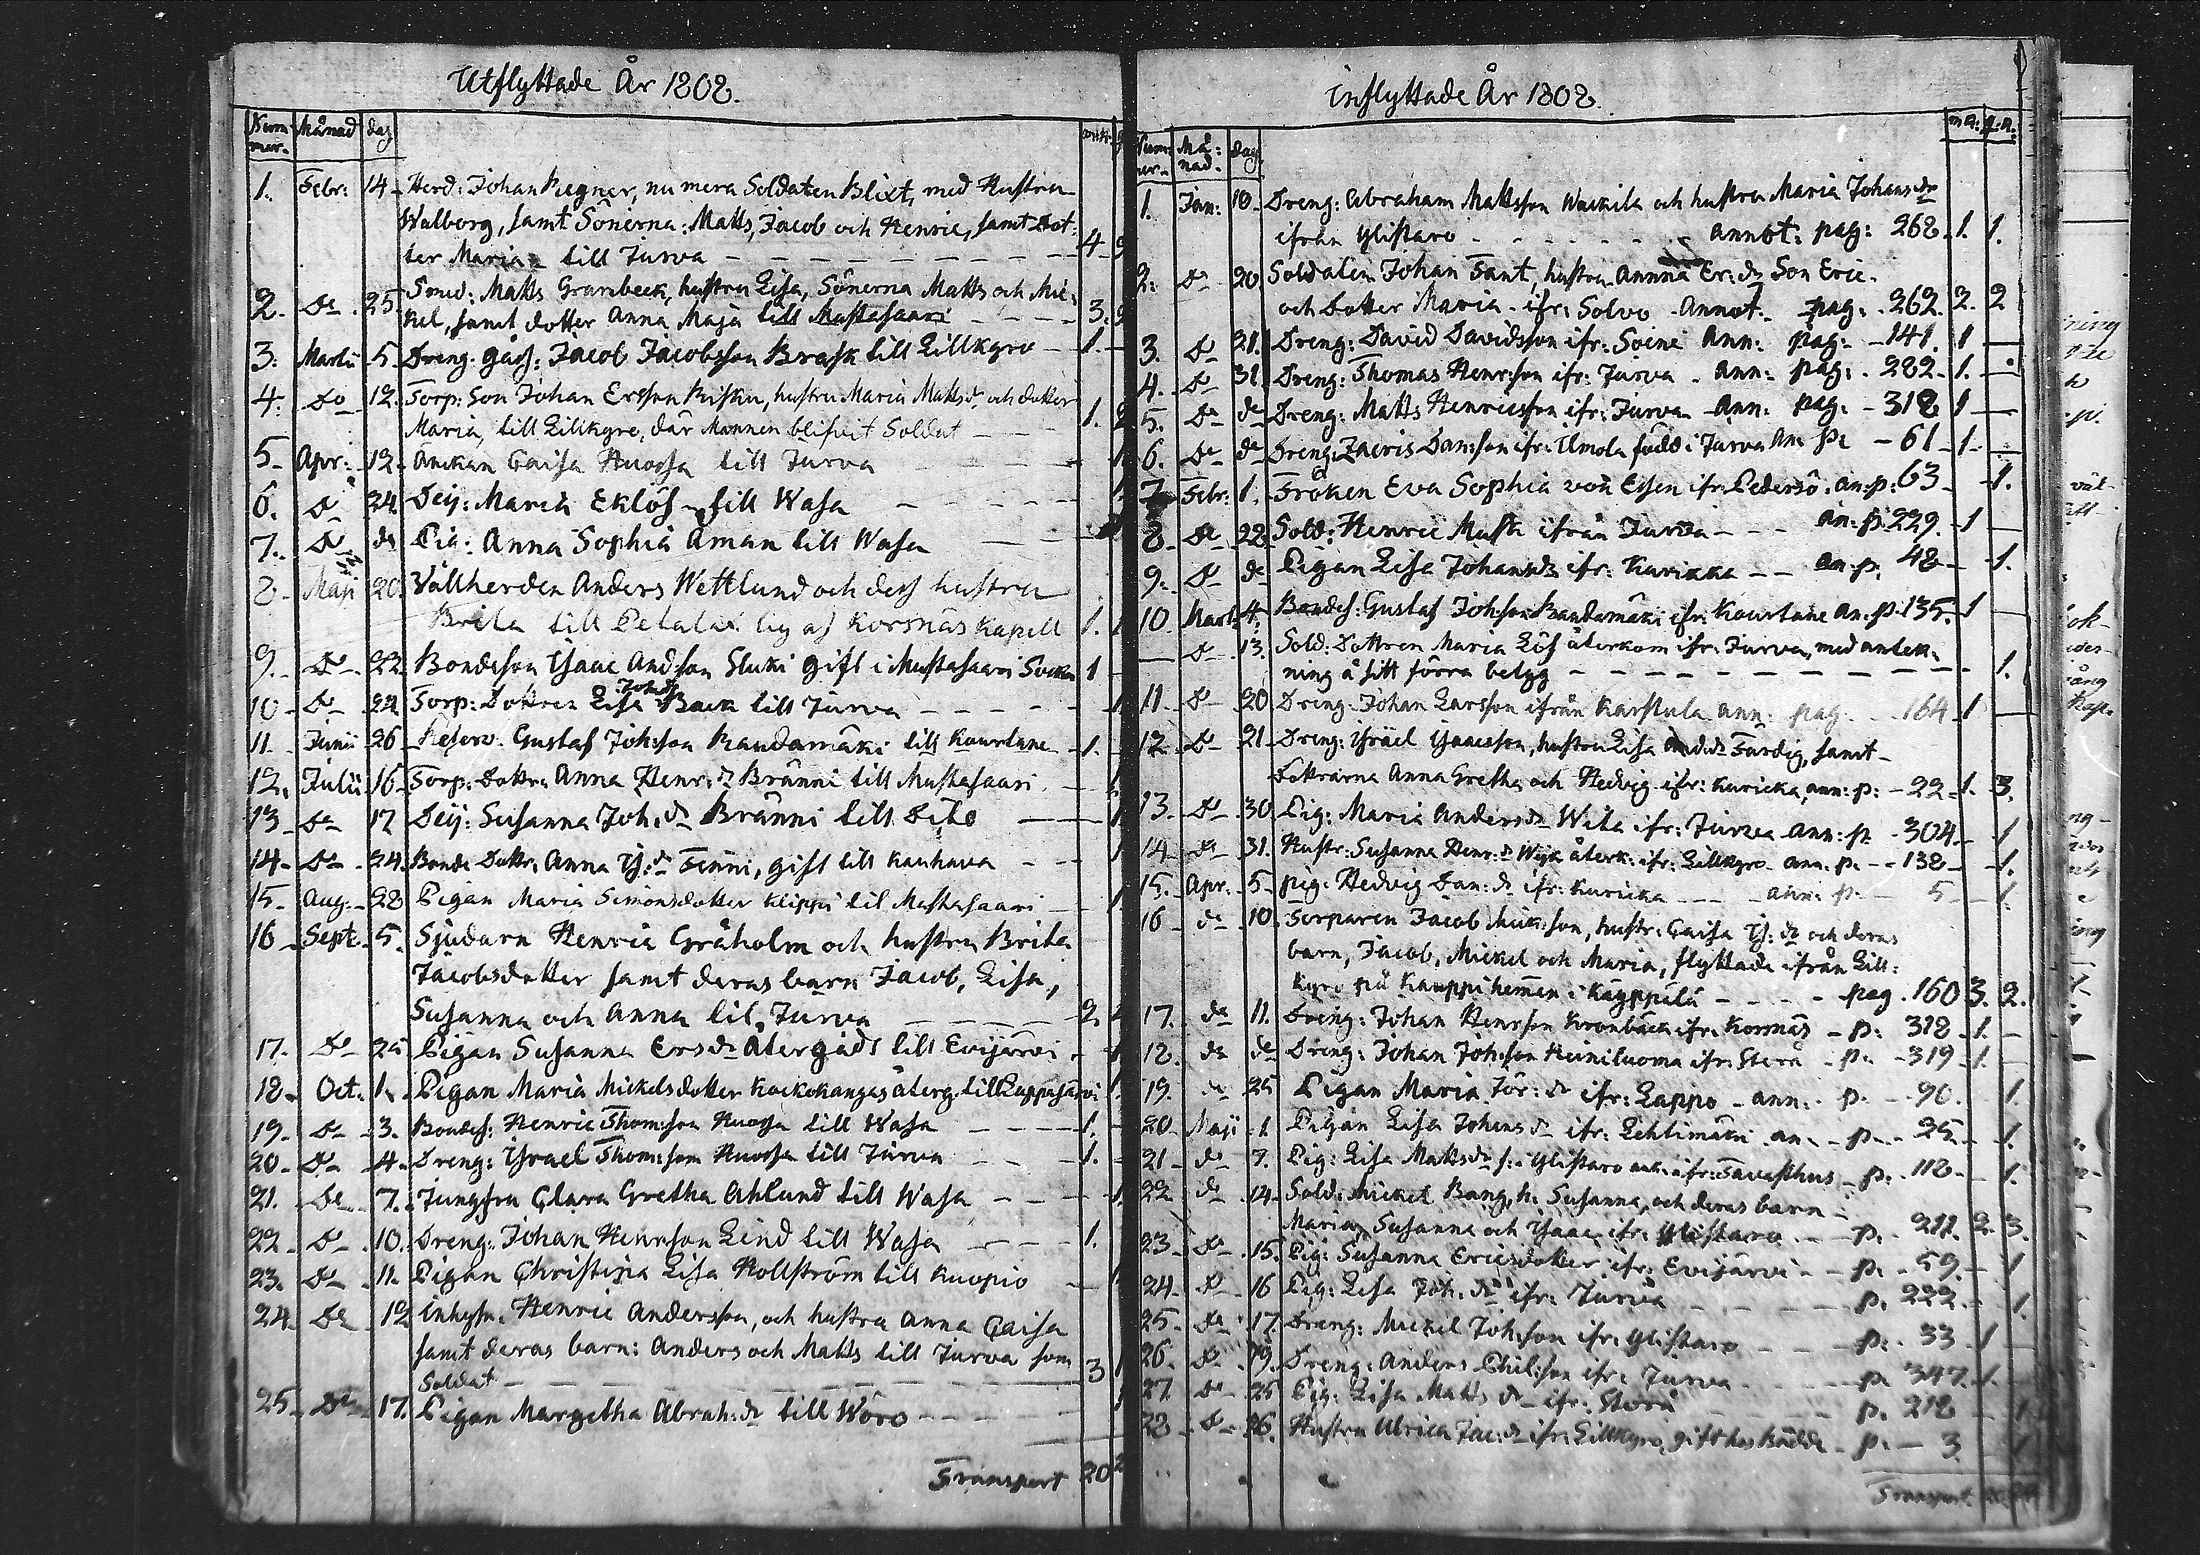 Utflyttade År 1808.
Num-
mer. Månad dag
1. Febr: 14 Herd: Johan Regner, nu mera Soldaten Blixt, med Hustru
Walborg, samt Sönerna: Matts, Jacob och Henric, samt Dot-
ter Maria till Jurva 4
2. Do 25 Smed: Matts Granbeck, hustru Lisa, Sönerna Matts och Mic-
kel, samt dotter Anna Maja till Mustasaari 3.
3. Martii 5. Dreng. Jacob Jacobsson Brask till Lillkyro 1.
4. Do 12. Torp: Son Johan Ersson hustru Maria Mattsdr och dotter
Maria, till Lillkyro, där Mannen blifvit Soldat 1.
5 Apr: 12 Enkan Caisa Huossa till Jurva
6. Do 24 Dej: Maria Eklöf till Wasa
7. Do do Pig: Anna Sophia Åman till Wasa
8 Maji 20. Vallherden Anders Wettlund och dess hustru
Brita till Petalax af Korsnäs Kapell 1.
9. Do 22 Bondeson Isaac Andsson Sluki gift i Mustasaari Socken 1
10 Do 22 Torp: Dottren Lisa Johdr Back till Jurva
11. Junii 26 Reserv. Gustaf Johsson Randamäki till Kourtane 1.
12. Julii 16 Torp: Dottr: Anna Henr: dr Bränni till Mustasaari
13 Do 17 Dej: Susanna Joh: dr Bränni till Dito
14 Do 24. Bonde Dottr: Anna Is: dr Finni, gift till Kauhava
15 Aug. 28 Pigan Maria Simonsdotter Klippi til Mustasaari
16 Sept. 5. Sjudarn Henric Gråholm och hustru Brita
Jacobsdotter samt deras barn Jacob, Lisa,
Susanna och Anna til Jurva 2.
17. Do 25 Pigan Susanna Ersdr återgådt till Evijärvi
18 Oct. 1. Pigan Maria Mickelsdotter Kockokangas återg. till Lappajärvi
19 Do 3. Bondes: Henric Thomsson Huossa till Wasa 1.
20 Do 4. Dreng: Israel Thomsson Huossa till Jurva 1.
21. Do 7. Jungfru Clara Gretha Ahlund till Wasa
22 Do 10. Dreng: Johan Henrsson Lind till Wasa 1.
23. Do 11. Pigan Christina Lisa Hollström till Kuopio
24. Do 12 Inhys: Henric Andersson, och hustru Anna Caisa
samt deras barn: Anders och Matts till Jurva som
Soldat 3
25 Do 17. Pigan Margetha Abrah: dr till Wörö
Transport 20
Inflyttade År 1808.
Num-
mer. Må-
nad. dag. m.k: q.k:
1. Jan: 10 Dreng: Abraham Mattsson Wuckila och hustru Maria Johansdr
ifrån Ylistaro annot: pag: 268. 1. 1.
2. Do 20 Soldaten Johan Sant, hustru Annna Er: dr Son Eric
och Dotter Maria ifr: Solvo Annot. pag: 262. 2. 2
3. Do 21. Dreng: David Davidsson ifr: Soini Ann: pag: 141. 1
4. Do 31. Dreng: Thomas Henrsson ifr: Jurva Ann: pag: 282 1.
5. Do do Dreng: Matts Henricsson ifr: Jurva Ann: pag: 318 1
6. Do do Dreng: Zacris Damsson ifr: Ilmola född i Jurva An: p: 61 1.
7 Febr: 1. Fröken Eva Sophia von Essen ifr: Pedersö. an: p: 63 1.
8 Do 22 Sold: Henric Musk ifrån Jurva an: p: 229. 1
9. Do do Pigan Lisa Johansdr ifr: Kurikka an: p. 48 1.
10 Mart: 4. Bondes: Gustaf Johsson Randamäki ifr: Kourtane an: p. 135. 1
Do 13. Sold: Dottren Maria Löf återkom ifr: Jurva, med anteck-
ning å sitt förra betyg 1.
11. Do 20 Dreng: Johan Larsson ifrån Karstula ann: pag: 164 1
12. Do 21 Dreng: Israel Isaacsson, hustru Lisa Andsdr Färdig, samt
Döttrarna Anna Gretha och Hedvig ifr: Kuricka, ann: p: 22 1. 3.
13. Do 30 Pig: Maria Andersdr Wita ifr: Jurva Ann: p. 304 1
14 do 31. Hustr: Susanna Henr: dr återk. ifr: Lillkyro ann. p. 138 1.
15. Apr. 5 pig: Hedvig Dan: dr ifr: Kuricka ann: p. 5 1.
16 do 10. Torparen Jacob Mickson, hustr: Caisa Is: dr och deras
barn, Jacob, Mickel och Maria, flyttade ifrån Lill-
kyro på Kauppi hemman i Käyppilä pag. 160 3. 2.
17. do 11. Dreng: Johan Henrson Kronbäck ifr: Korsnäs p: 318 1.
18. do do Dreng: Johan Johsson Heiniluoma ifr: Storå p: 319 1.
19. do 25 Pigan Maria Tör: dr ifr: Lappo ann: p. 90. 1.
20 Maji 1 Pigan Lisa Johans dr ifr: Lehtimäki an: p. 25 1.
21 do 7. Pig: Lisa Mattsdr f: i Ylistaro ifr: Tavasthus p: 118 1.
22 do 14 Sold: Mickel Bang, h: Susanna, och deras barn
Maria, Susanna och Isaac ifr: Ylistaro p. 211. 2. 3.
23 Do 15. Pig: Susanna Ericsdotter ifr: Evijärvi p. 59. 1
24 Do 16 Pig: Lisa Joh: dr ifr: Jurva p. 222. 1.
25 Do 17. Dreng: Mickel Johsson ifr: Ylistaro p: 33 1
26. Do 19. Dreng: Anders Philsson ifr: Jurva p. 347. 1.
27. Do 25 Pig: Lisa Matts dr ifr: Storå p. 218 1
28 Do 26. Hustru Ulrica Jac: dr ifr: Lillkyro, gift hos Rädde p: 3 1
Transport